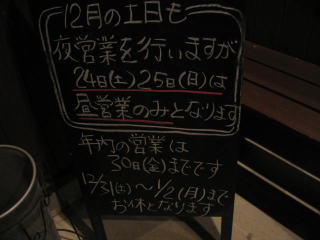 12月の土日も
夜営業を行いますが
24日(土)25日(日)は
昼営業のみとなります
年内の営業は
30日(金)までです
12/31(土)～1/2(月)まで
お休となります